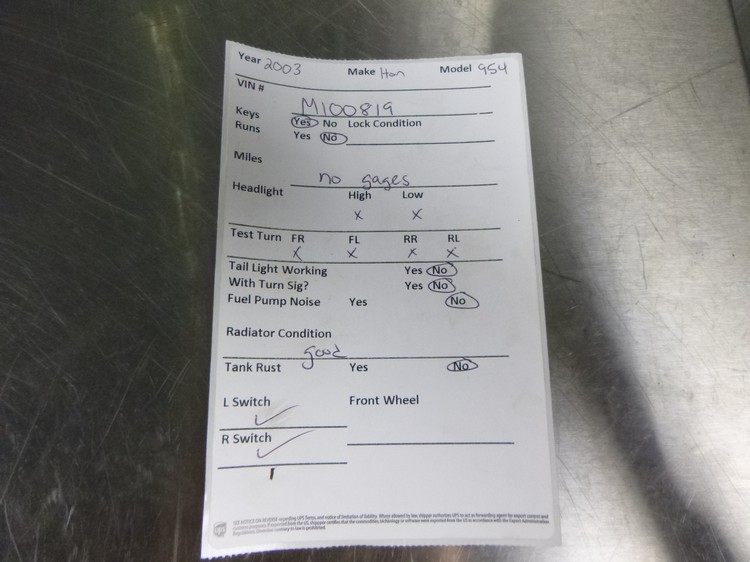 Year 2003 Make Hon Model 954
VIN #
M100819
Keys Yes No Lock Condition
Runs Yes No
Miles
no gages
Headlight High Low
X X
Test Turn FR FL RR RL
X X X X
Tail Light Working Yes No
With Turn Sig? Yes No
Fuel Pump Noise Yes No
Radiator Condition
good
Tank Rust Yes No
L Switch Front Wheel
✓
R Switch
✓